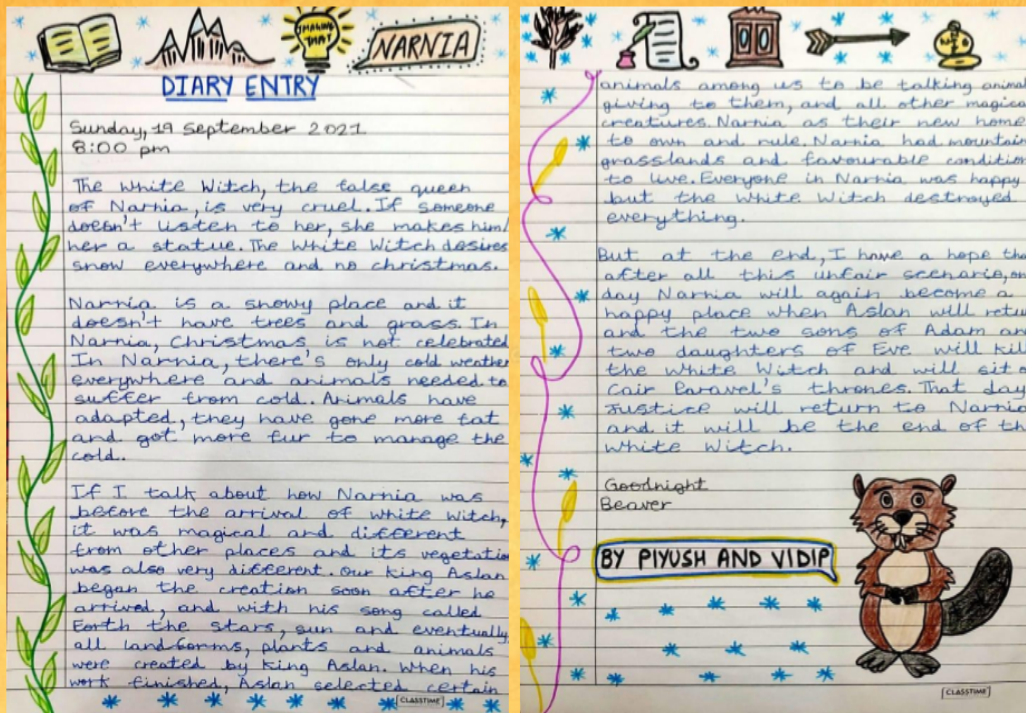 IMAGINE THAT
NARNIA
DIARY ENTRY
Sunday, 19 September 2021
8:00 pm
The White Witch, the false queen
of Narnia, is very cruel. If someone
doesn't listen to her, she makes him/
her a statue. The White Witch desires
snow everywhere and no christmas.
Narnia is a snowy place and it
doesn't have trees and grass. In
Narnia, Christmas is not celebrated
In Narnia, there's only cold weather
everywhere and animals needed to
suffer from cold. Animals have
adapted, they have gone more fat
and got more fur to manage the
cold.
If I talk about how Narnia was
before the arrival of white witch,
it was magical and different
from other places and its vegetatio
was also very different. Our king Aslan
began the creation soon after he
arrived, and with his song called
Forth the stars, sun and eventually,
all landforms, plants and animals
were created by King Aslan. When his
work finished, Aslan selected certain
CLASSTIME
animals among us to be talking animal
giving to them, and all other magica
creatures. Narnia as their new home
to own and rule. Narnia had mountain
grasslands and favourable condition
to live. Everyone in Narnia was happy
but the White Witch destroyed
everything.
But at the end, I have a hope tha
after all this unfair scenario, on
day Narnia will again become a
happy place when Aslan will retu
and the two sons of Adam an
two daughters of Eve will kill
the White Witch and will sit o
Cair Paravel's thrones. That day
Justice will return to Narnia
and it will be the end of th
White Witch.
Goodnight
Beaver
BY PIYUSH AND VIDIP
CLASSTIME